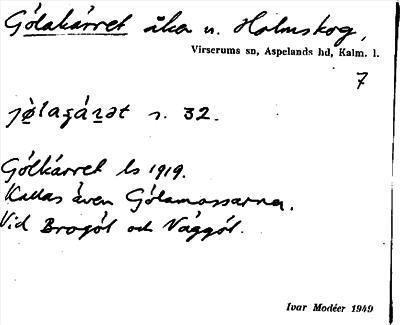 Gölakärret åker u. Holmskog,
Virserums sn, Aspelands hd, Kalm. l.
7
s. 32.
Gölkärret ls 1919.
Kallas även Gölamossarna.
Vid Brogöl och Väggöl.
Ivar Modéer 1949